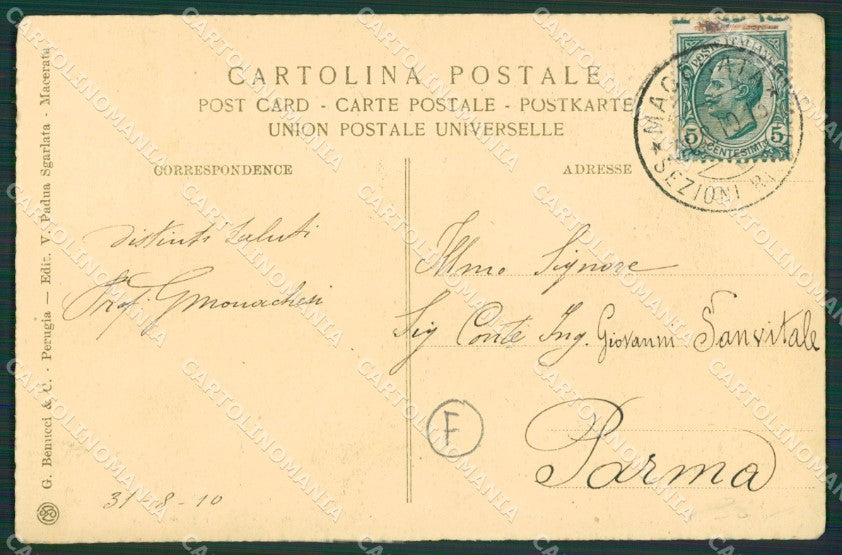 CARTOLINA POSTALE
POST CARD - CARTE POSTALE - POSTKARTE
UNION POSTALE UNIVERSELLE
CORRESPONDENCE
ADRESSE
POSTE ITALIANE
5 CENTESIMI 5
*MACERATA*
SEZIONI RI
distinti saluti
Prof. G Monachesi
Illmo Signore
Sig Conte Ing. Giovanni Sanvitale
Parma
F
31-8-10
G. Benucci & C. - Perugia — Edit. V. Padua Sgarlata - Macerata
CARTOLINOMANIA